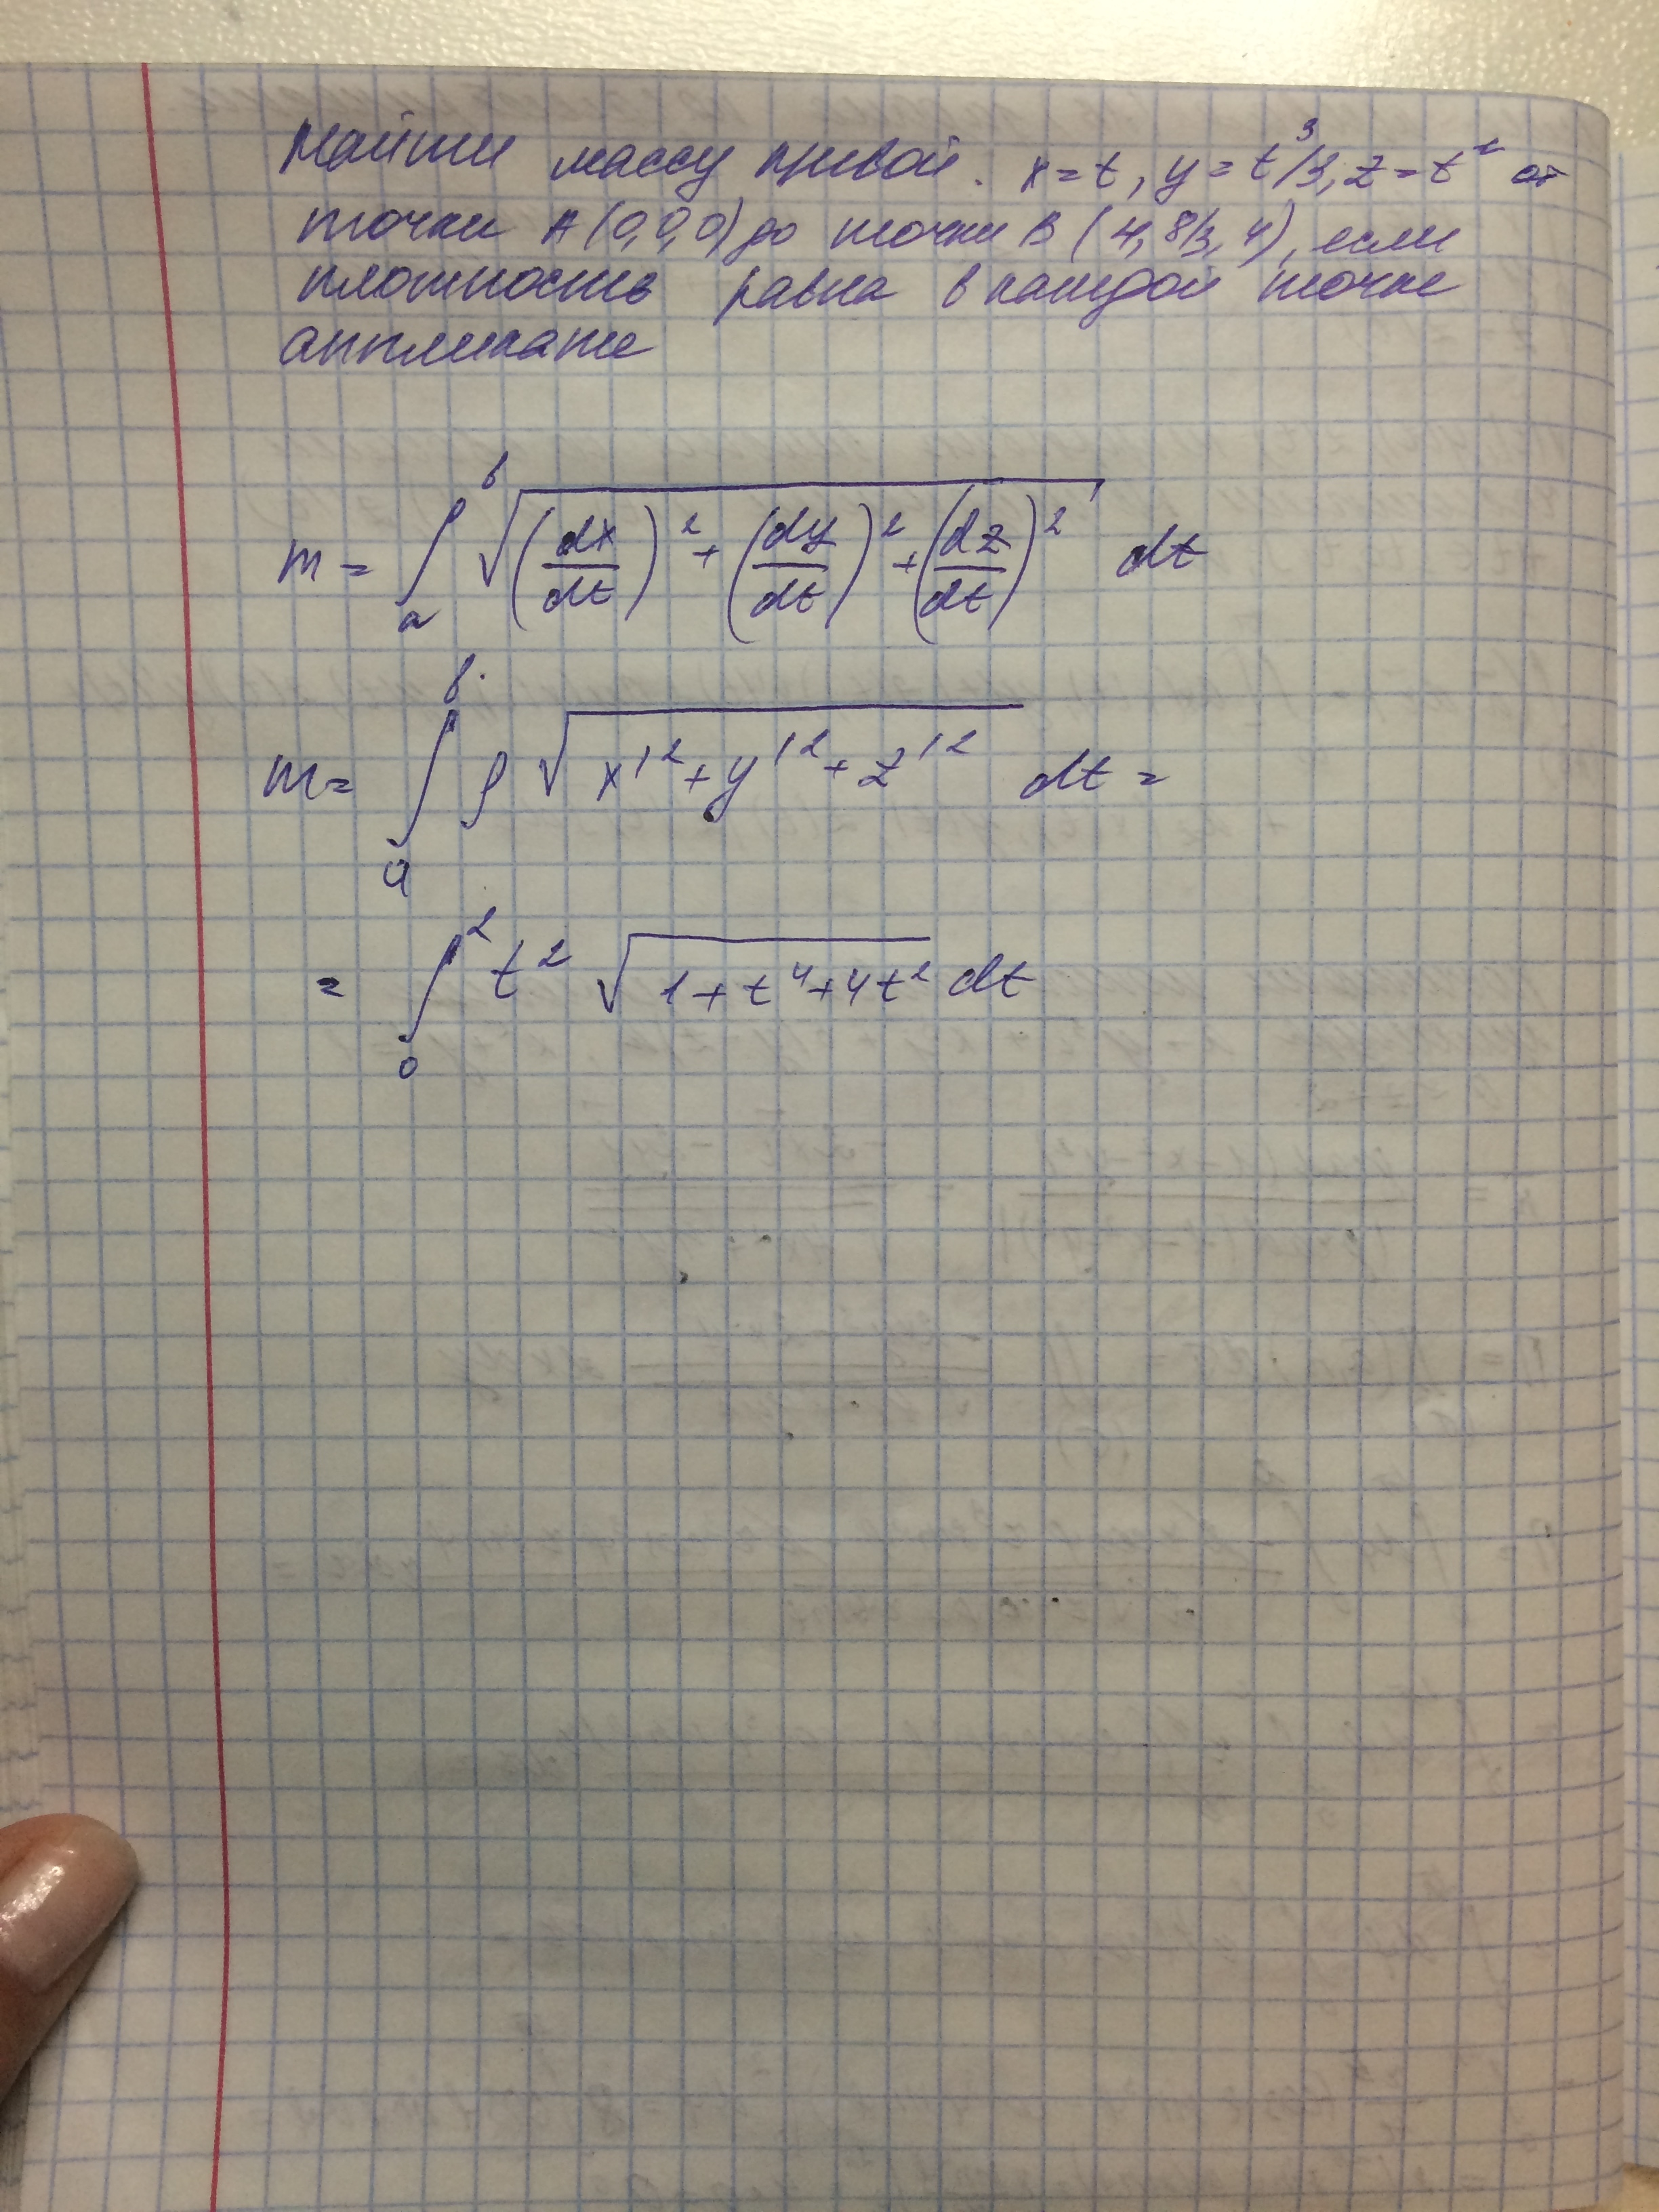 Найти массу кривой. x = t, y = t³/3, z = t² от
точки A (0, 0, 0) до точки B (4, 8/3, 4), если
плотность равна в каждой точке
аппликате
m = ∫ₐᵇ √((dx/dt)² + (dy/dt)² + (dz/dt)²) dt
m = ∫ₐᵇ ρ √(x'² + y'² + z'²) dt =
= ∫₀² t² √(1 + t⁴ + 4t²) dt